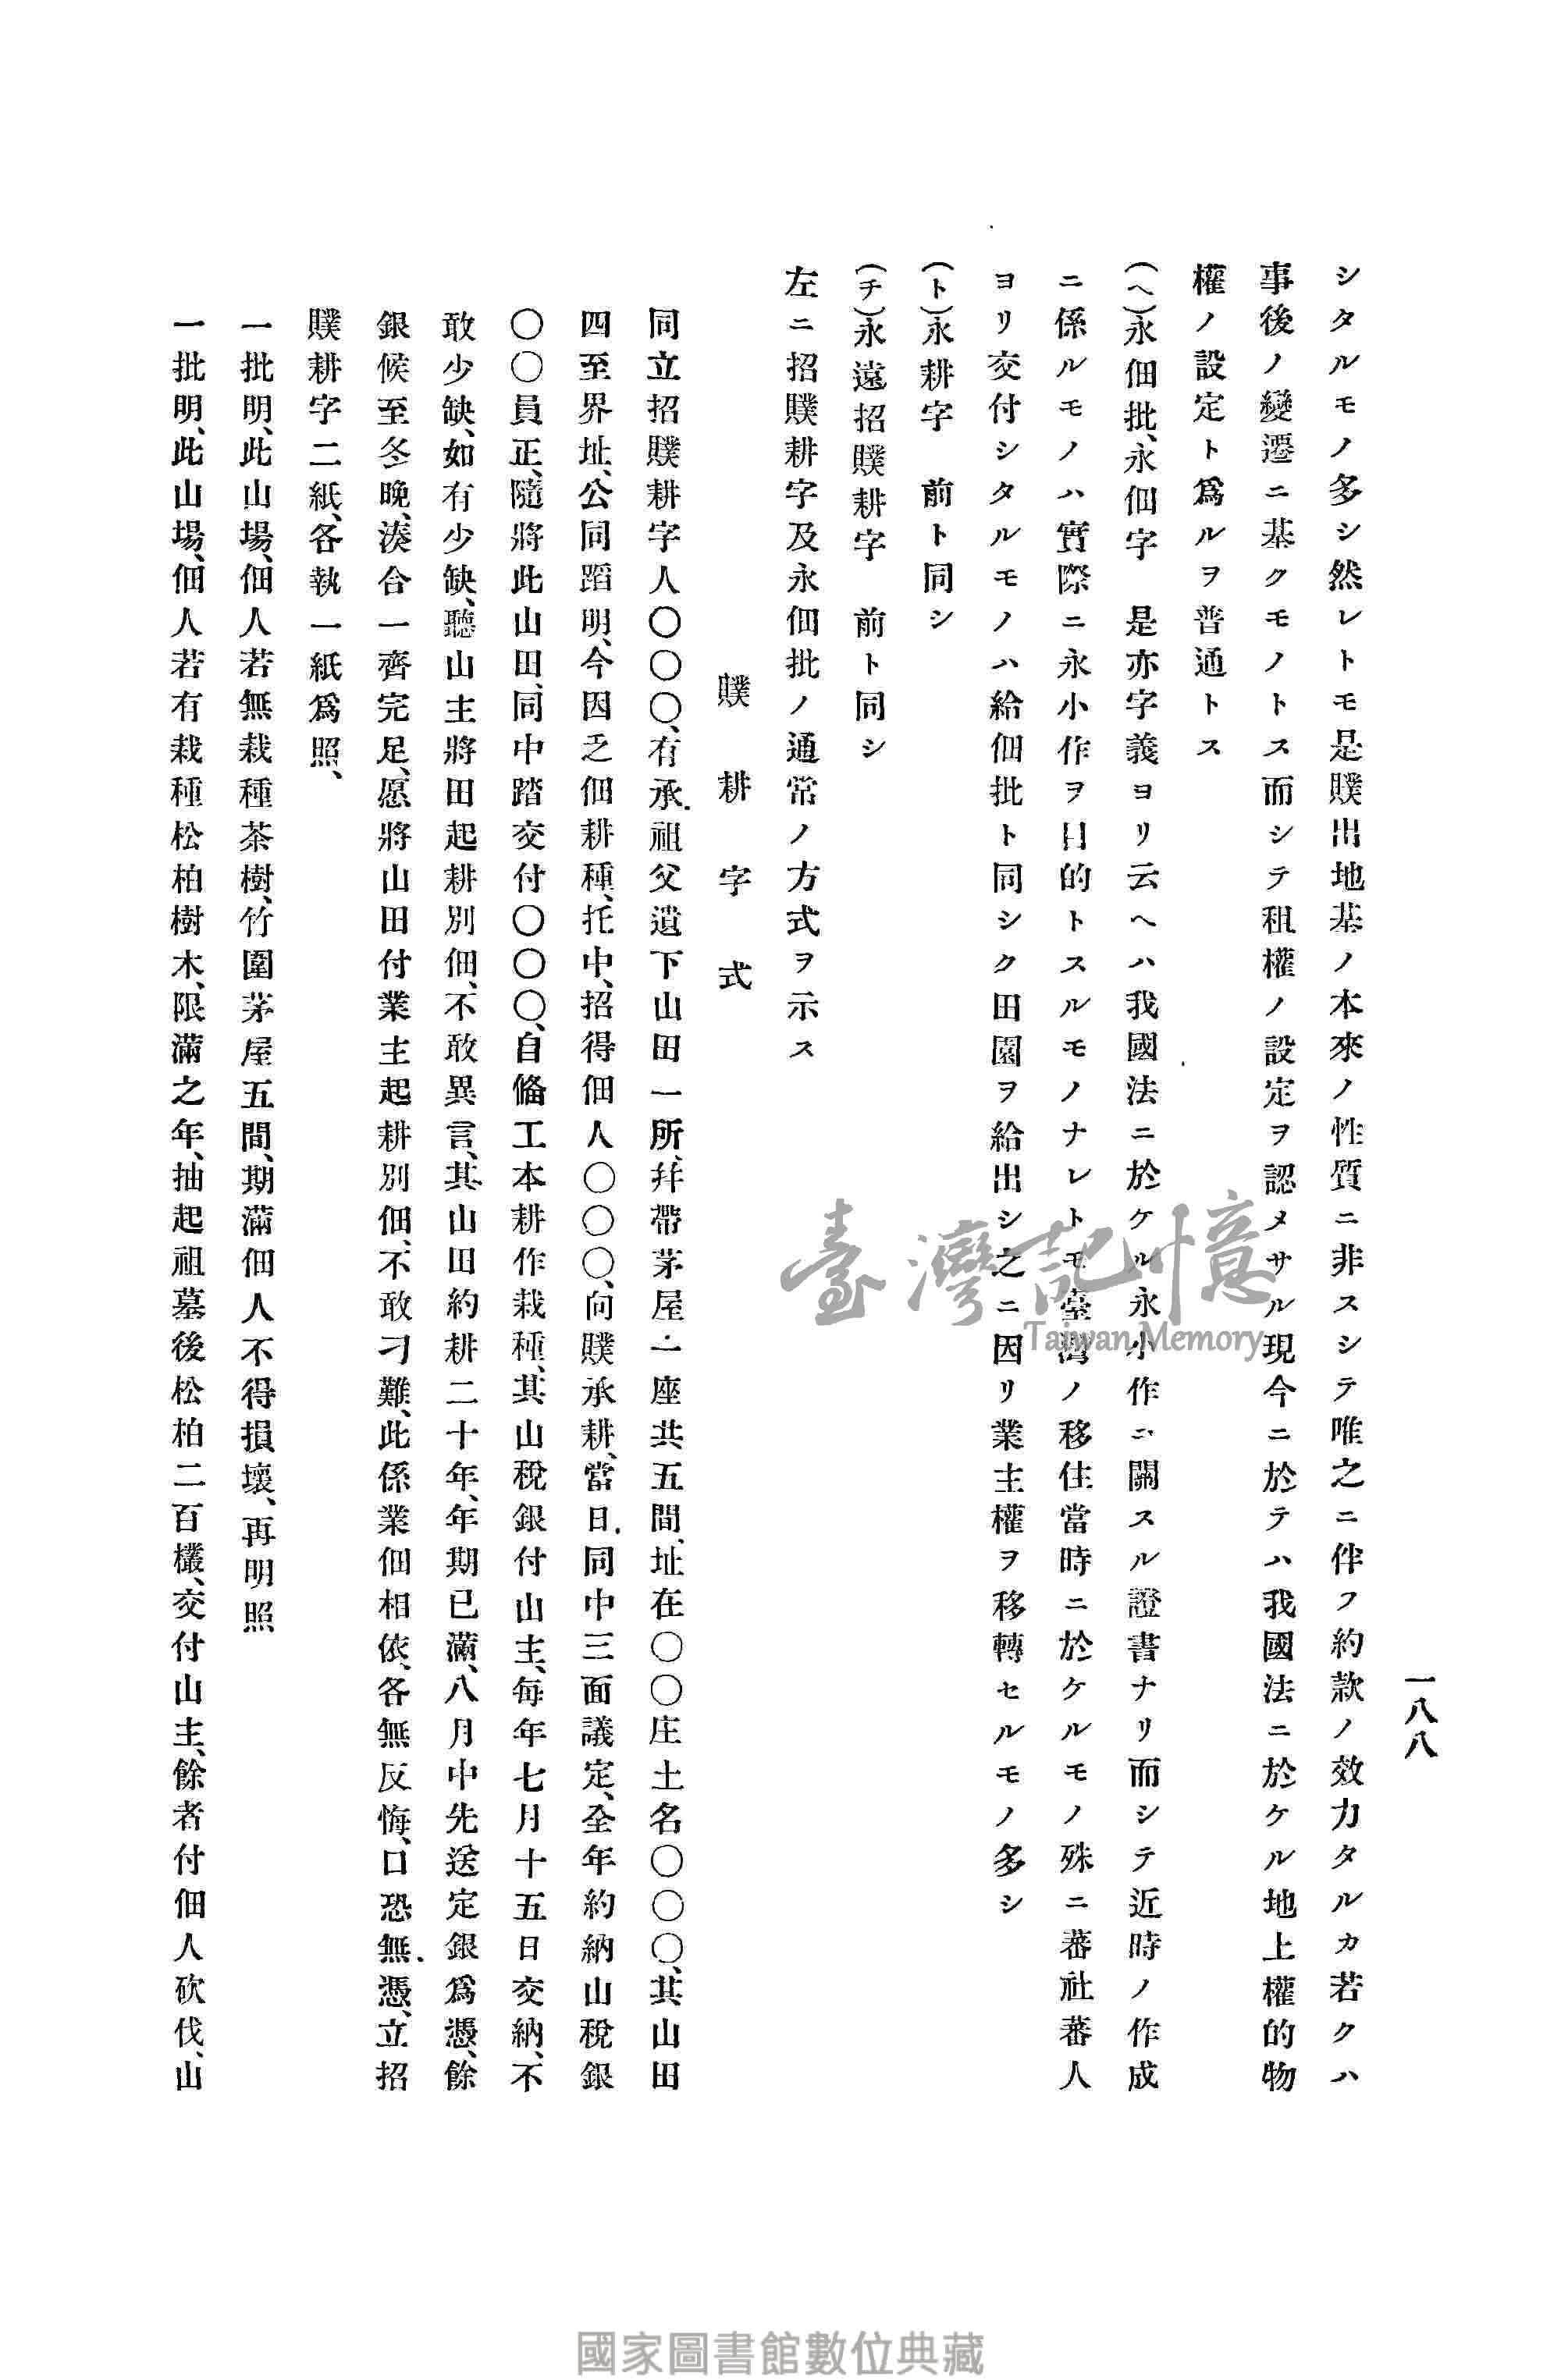 一八八
シタルモノ多シ然レトモ是贌出地基ノ本來ノ性質ニ非スシテ唯之ニ伴フ約款ノ效力タルカ若クハ
事後ノ變遷ニ基クモノトス而シテ租權ノ設定ヲ認メサル現今ニ於テハ我國法ニ於ケル地上權的物
權ノ設定ト爲ルヲ普通トス
(ヘ)永佃批、永佃字　是亦字義ヨリ云ヘハ我國法ニ於ケル永小作ニ關スル證書ナリ而シテ近時ノ作成
ニ係ルモノハ實際ニ永小作ヲ目的トスルモノナレトモ臺灣ノ移住當時ニ於ケルモノ殊ニ蕃社蕃人
ヨリ交付シタルモノハ給佃批ト同シク田園ヲ給出シ之ニ因リ業主權ヲ移轉セルモノ多シ
(ト)永耕字　前ト同シ
(チ)永遠招贌耕字　前ト同シ
左ニ招贌耕字及永佃批ノ通常ノ方式ヲ示ス
贌耕字式
同立招贌耕字人〇〇〇、有承祖父遺下山田一所、幷帶茅屋一座共五間、址在〇〇庄土名〇〇〇、其山田
四至界址、公同蹈明、今因乏佃耕種、托中、招得佃人〇〇〇、向贌承耕、當日同中三面議定、全年約納山稅銀
〇〇員正、隨將此山田、同中踏交付〇〇〇、自備工本耕作栽種、其山稅銀付山主、每年七月十五日交納、不
敢少缺、如有少缺、聽山主將田起耕別佃、不敢異言、其山田約耕二十年、年期已滿、八月中先送定銀爲憑、餘
銀候至冬晚、湊合一齊完足、愿將山田付業主起耕別佃、不敢刁難、此係業佃相依、各無反悔、口恐無憑、立招
贌耕字二紙、各執一紙爲照、
一批明、此山場、佃人若無栽種茶樹、竹圍茅屋五間、期滿佃人不得損壞、再明照
一批明、此山場、佃人若有栽種松柏樹木、限滿之年、抽起祖墓後松柏二百欉、交付山主、餘者付佃人砍伐、山
臺灣記憶
Taiwan Memory
國家圖書館數位典藏